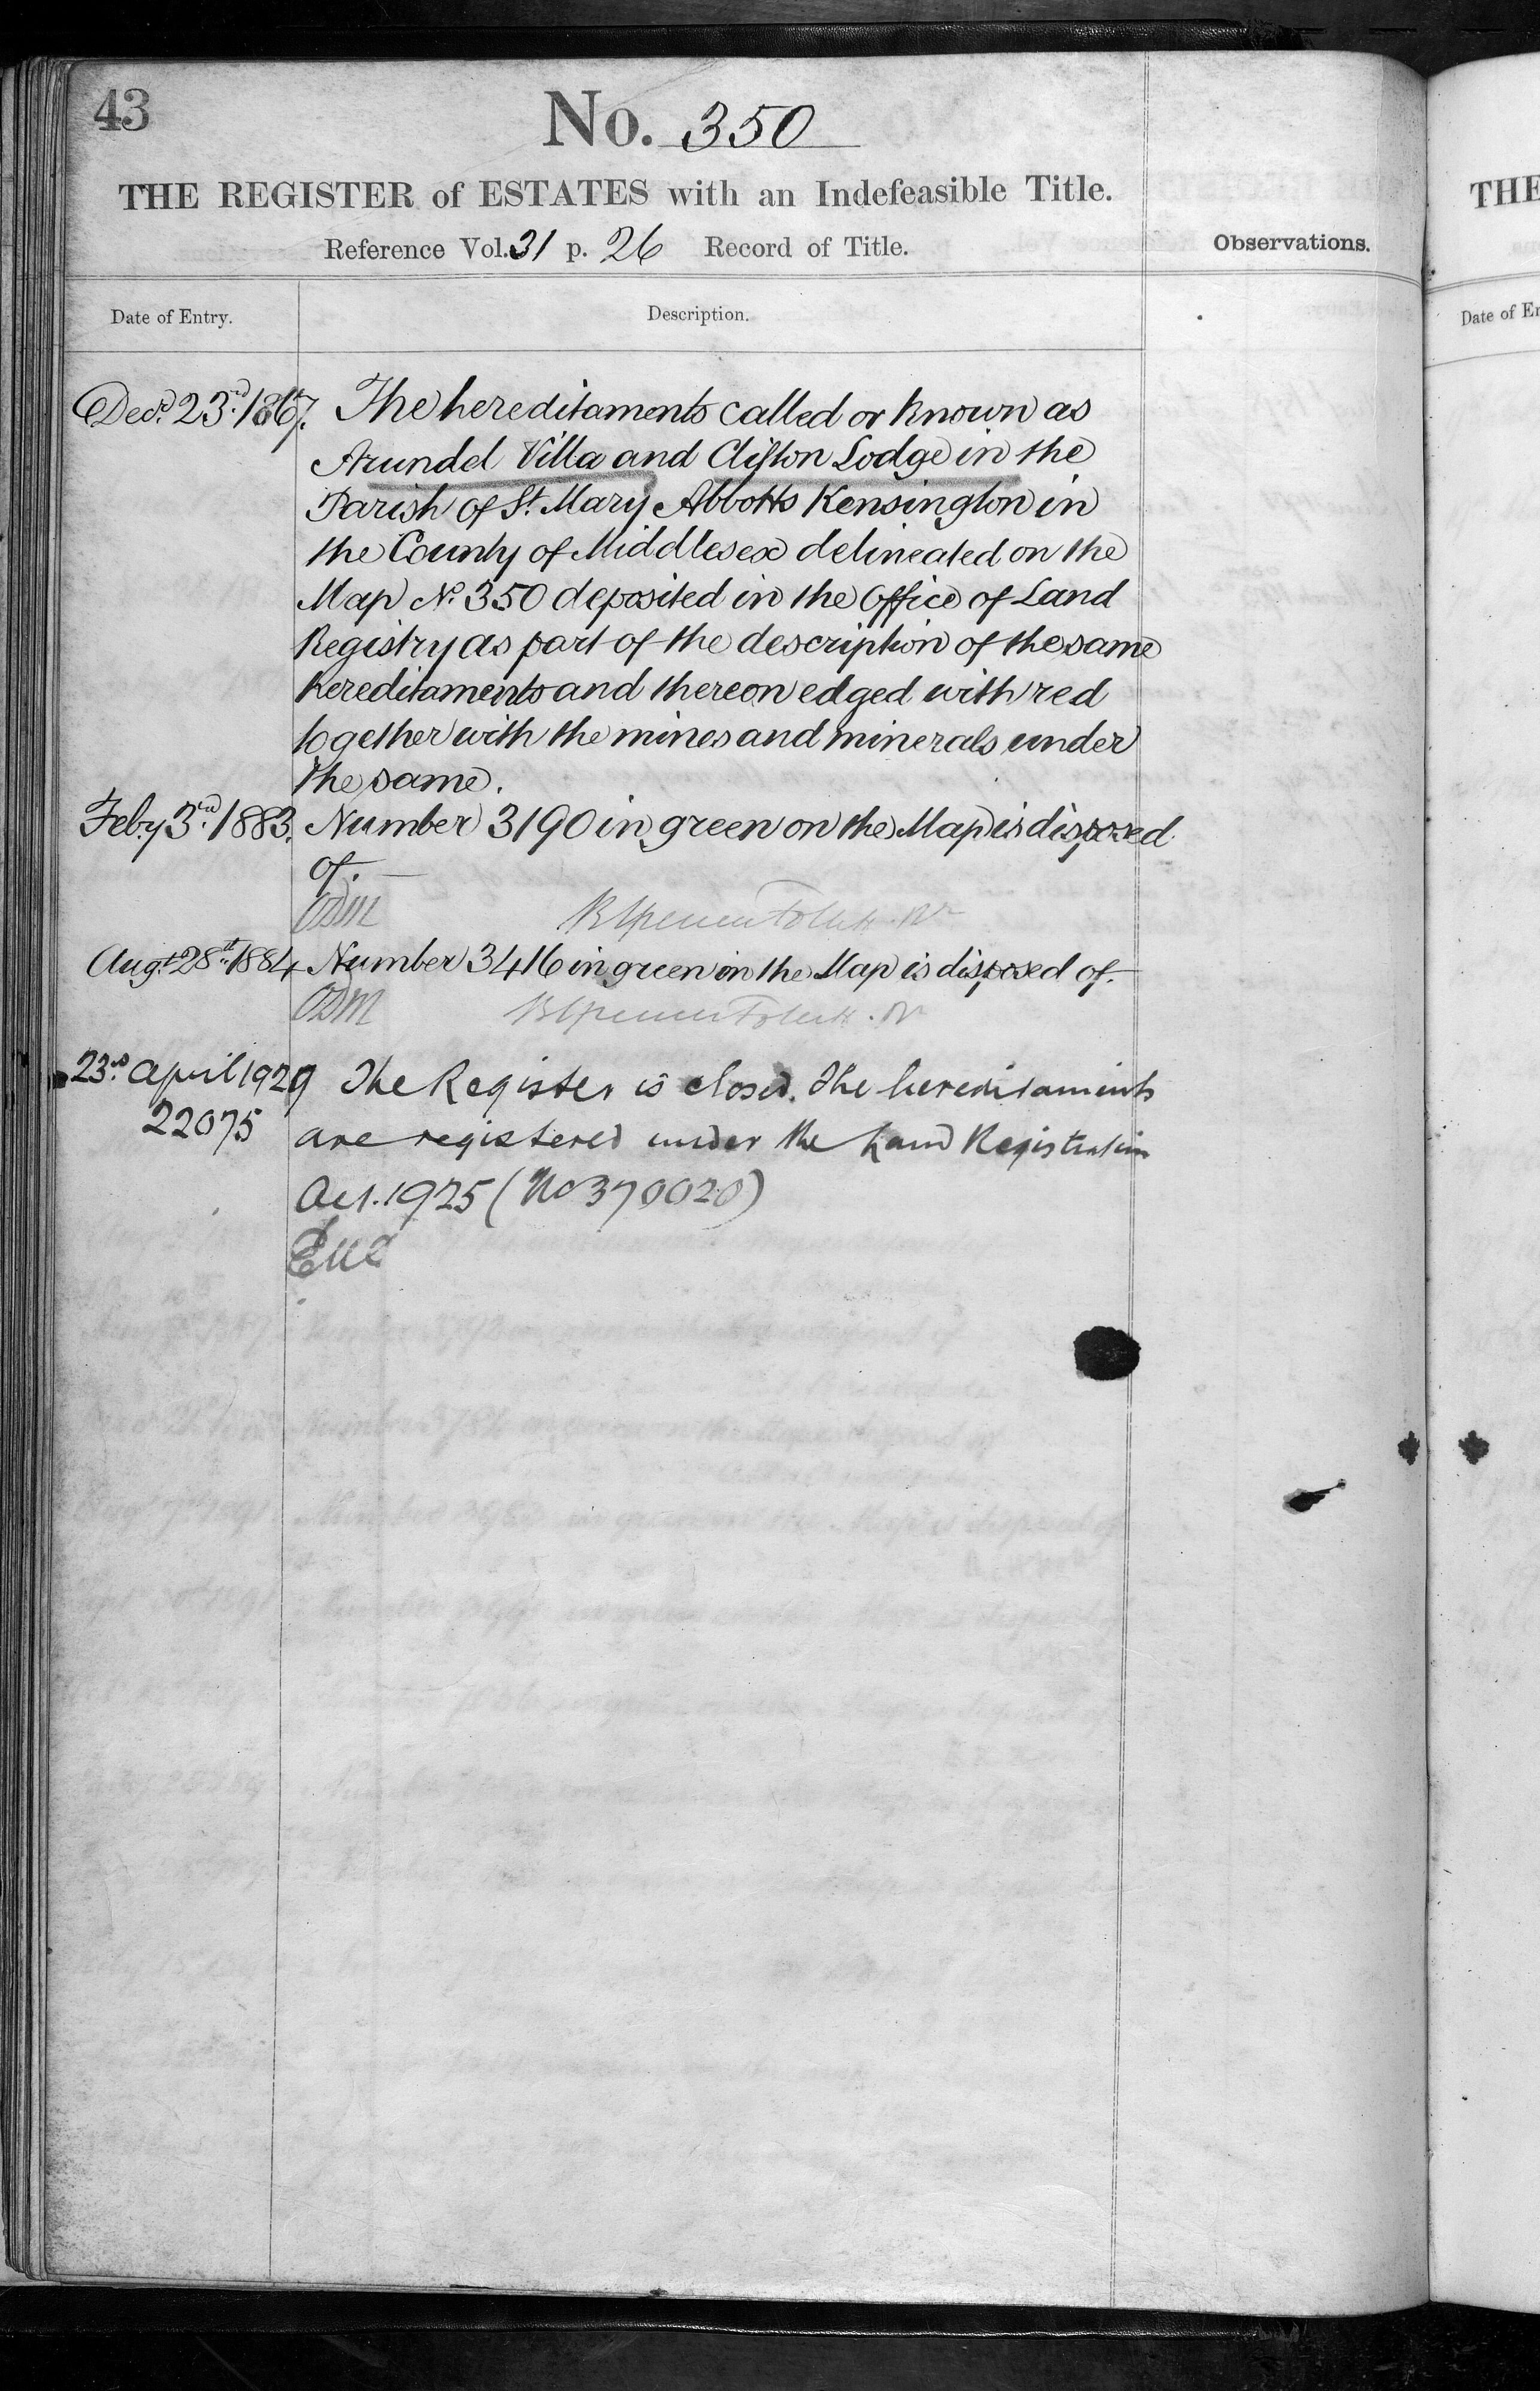 43
No. 350
THE REGISTER of ESTATES with an Indefeasible Title.
Reference Vol. 31 p. 26 Record of Title.
Observations.
Date of Entry.
Description.
Decr. 23rd. 1867. The hereditaments called or known as
Arundel Villa and Clifton Lodge in the
Parish of St. Mary Abbotts Kensington in
the County of Middlesex delineated on the
Map No. 350 deposited in the Office of Land
Registry as part of the description of the same
hereditaments and thereon edged with red
together with the mines and minerals under
the same.
Feby 3rd. 1883. Number 3190 in green on the Map is disposed
of.
Augt. 28th. 1884 Number 3416 in green on the Map is disposed of.
23rd. April 1929 The Register is closed. The hereditaments
22075 are registered under the Land Registration
Act. 1925 (No 370020)
THE
Date of En